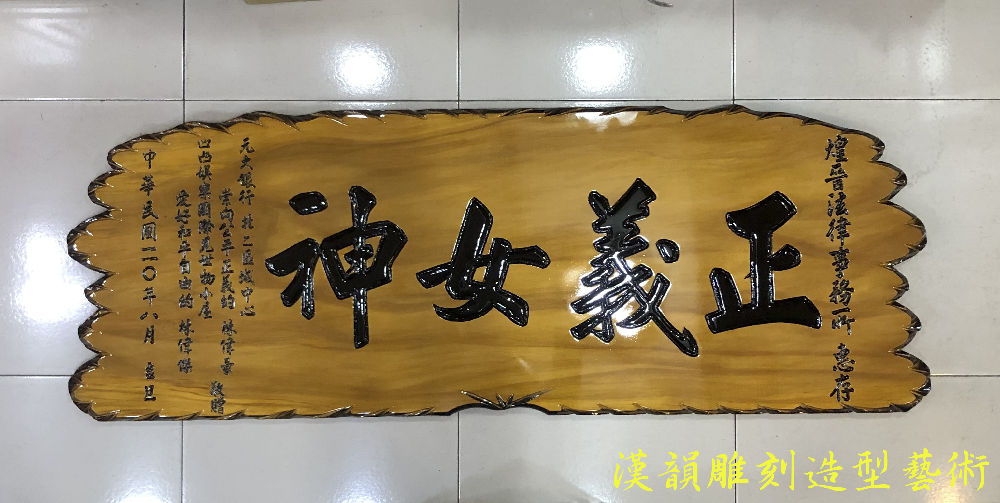 煌晉法律事務所 惠存
正義女神
元大銀行 北二區域中心
崇尚公平正義的 陳偉豪
凹凸娛樂國際危世物小屋
愛好和平自由的 陳偉傑
敬贈
中華民國一一〇年八月 吉旦
漢韻雕刻造型藝術